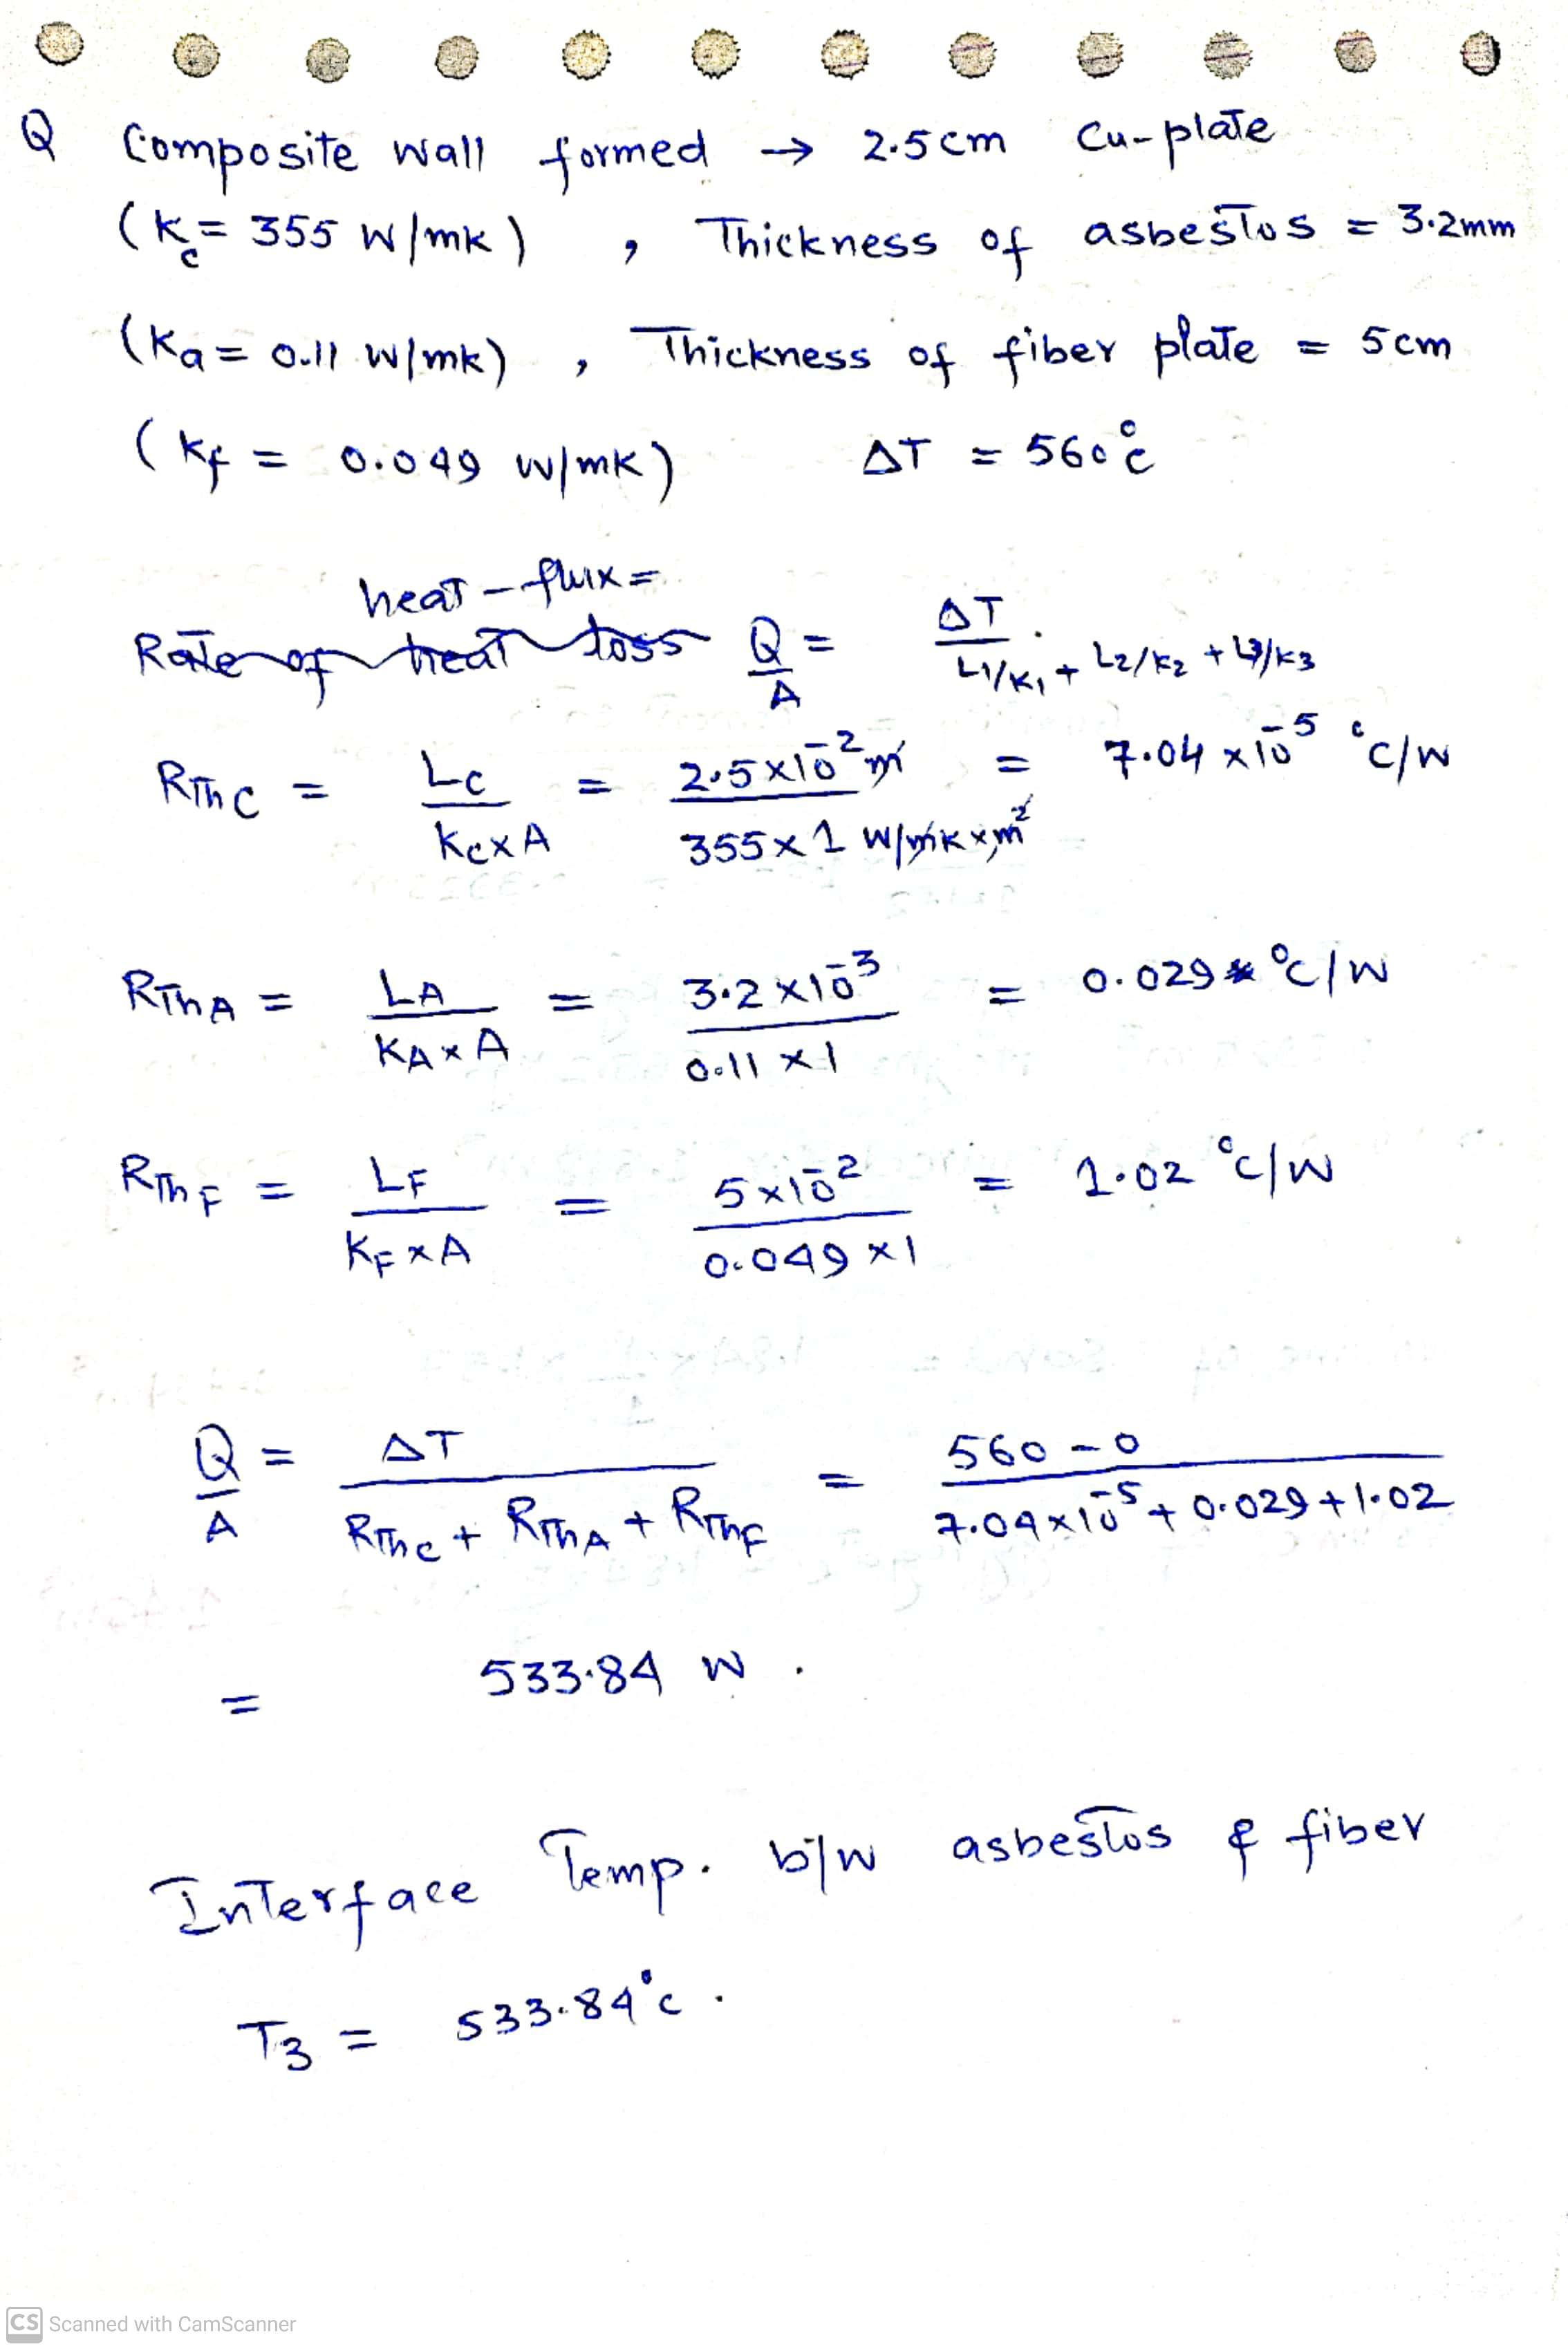 Q Composite wall formed → 2.5cm Cu-plate
(Kc = 355 W/mk) , Thickness of asbestos = 3.2mm
(Ka = 0.11 W/mk) , Thickness of fiber plate = 5cm
(Kf = 0.049 W/mK) ΔT = 560°C
heat-flux =
Rate of heat loss Q/A = ΔT / (L1/K1 + L2/K2 + L3/K3)
RThC = Lc / (Kc×A) = 2.5×10⁻² m / (355×1 W/mK×m²) = 7.04×10⁻⁵ °C/W
RThA = LA / (KA×A) = 3.2×10⁻³ / (0.11×1) = 0.029 °C/W
RThF = LF / (KF×A) = 5×10⁻² / (0.049×1) = 1.02 °C/W
Q/A = ΔT / (RThC + RThA + RThF) = 560-0 / (7.04×10⁻⁵ + 0.029 + 1.02)
= 533.84 W.
Interface Temp. b/w asbestos & fiber
T3 = 533.84°C.
CS Scanned with CamScanner